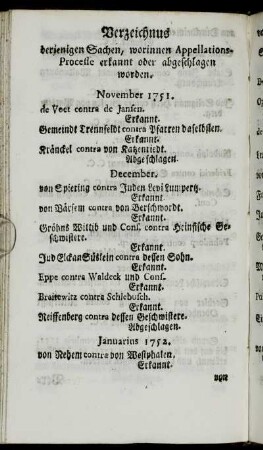 Verzeichnus
derjenigen Sachen, worinnen Appellations-
Processe erkannt oder abgeschlagen
worden.
November 1751.
de Voet contra de Jansen.
Erkannt.
Gemeindt Trennfeldt contra Pfarren daselbsten.
Erkannt.
Kränckel contra von Katzentedt.
Abgeschlagen.
December.
von Spiering contra Juden Levi Lumpertz.
Erkannt
von Bävsem contra von Berschwordt.
Erkannt.
Gröhns Wittib und Cons. contra Heinfische Ge-
schwistere.
Erkannt.
Jud Elckan Süslein contra dessen Sohn.
Erkannt.
Eppe contra Waldeck und Cons.
Erkannt.
Braitowitz contra Schlebusch.
Erkannt.
Neiffenberg contra dessen Geschwistere.
Abgeschlagen.
Januarius 1752.
von Nehem contra von Westphalen.
Erkannt.
von